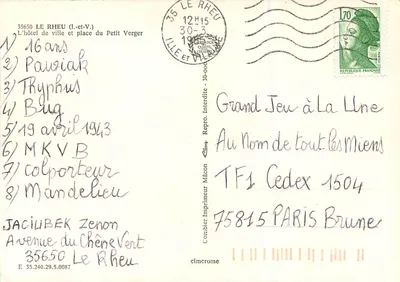 35650 LE RHEU (I.-et-V.)
L'hôtel de ville et place du Petit Verger
1) 16 ans
2) Pawiak
3) Thyphus
4) Bug
5) 19 avril 1943
6) M K V B
7) Colporteur
8) Mandelieu
JACIUBEK Zenon
Avenue du Chêne Vert
35650 Le Rheu
E 35.240.29.5.0087
Combier Imprimeur Mâcon
Repro. Interdite
cimcrome
35 LE RHEU
12H15
30-3
ILLE ET VILAINE
1,70
REPUBLIQUE FRANÇAISE
Grand Jeu à La Une
Au Nom de tout les Miens
TF1 Cedex 1504
75815 PARIS Brune